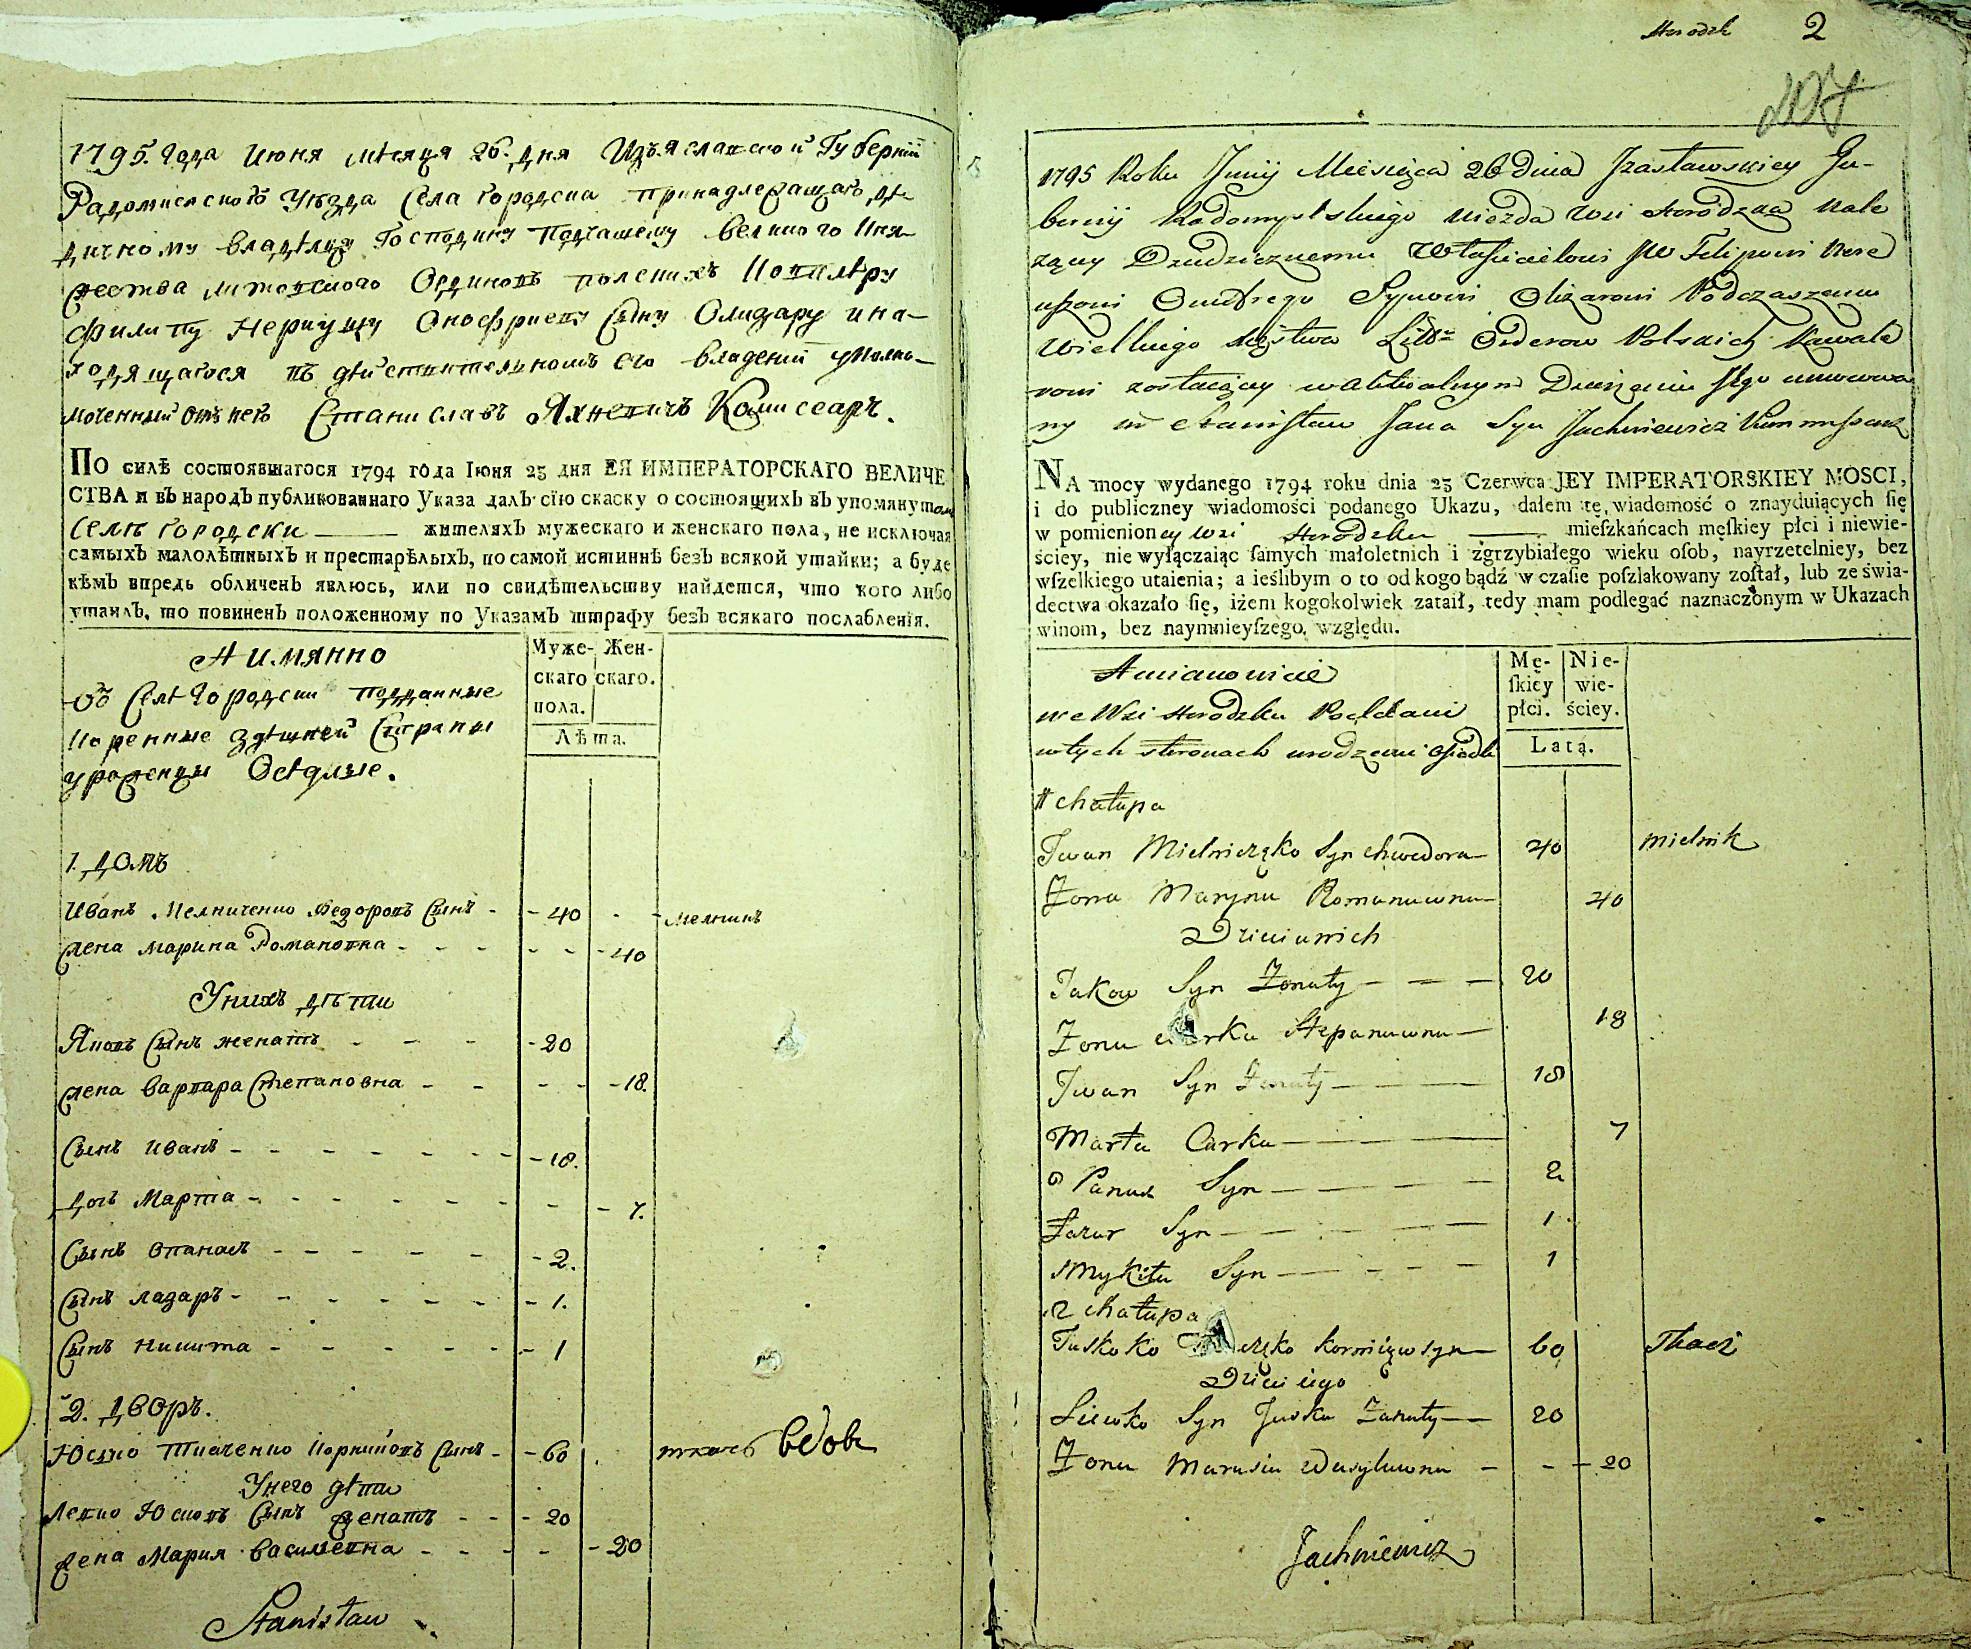 1795. Года Июня месяца 26. дня Изъяславской Губернiи
Радомисского Уезда Села Городска принадлежащаго де
дичному владелцу Господину Подчашему великого Кня
жества литовского Ординовъ полскихъ Кавалеру
Филипу Нериушу Онофриеву Сыну Олизару ина-
ходящагося въ действителномъ его владенiи уполно-
моченный отъ него Станиславъ Яхневичъ Комисеаръ.
ПО силѣ состоявшагося 1794 года Iюня 23 дня ЕЯ ИМПЕРАТОРСКАГО ВЕЛИЧЕ
СТВА и въ народъ публикованнаго Указа далъ сїю скаску о состоящихъ въ упомянутом
Селѣ Городски жителяхъ мужескаго и женскаго пола, не исключая
самыхъ малолѣтныхъ и престарѣлыхъ, по самой истиннѣ безъ всякой утайки; а буде
кѣмъ впредь обличенъ явлюсь, или по свидѣтельству найдется, что кого либо
утаилъ, то повиненъ положенному по Указамъ штрафу безъ всякаго послабленїя.
А имянно
Муже- Жен-
скаго скаго.
пола.
Лѣта.
въ Селе Городски подданные
Коренные здешней Страны
уроженцы Оседлые.
1. домъ
Иванъ Мелниченко Федоровъ Сынъ - 40 - мелникъ
жена марина Романовна - 40
Унихъ дѣти
Яковъ Сынъ женатъ - 20
жена варвара Степановна - 18.
Сынъ Иванъ - 18.
Дочь Марта - 7.
Сынъ Опанасъ - 2.
Сынъ лазаръ - 1.
Сынъ Никита - 1
2. дворъ.
Юско Ткаченко Корнийовъ Сынъ - 60 ткачь вдовъ
Унего дети
Левко Юсковъ Сынъ женатъ - 20
жена Мария василевна - 20
Stanisław
Horodek 2
1795 Roku Junij Miesięca 26 dnia Izasławskiey Gu-
bernij Radomyslskiego uiezda wsi Horodzka nale
żący Dziedzicznemu Włascicielowi JW Filipowi Nere
uszowi Onufrego Synowi Olizarowi Podczaszemu
Wielkiego Księstwa Litt: Orderow Polskich Kawale
rowi zostaiący w aktualnym Dzierżeniu Jego umocowa
ny od Stanisław Jana Syn Jachniewicz Kommissarz
NA mocy wydanego 1794 roku dnia 23 Czerwca JEY IMPERATORSKIEY MOSCI,
i do publiczney wiadomości podanego Ukazu, dałem tę wiadomość o znayduiących ſię
w pomienioney wsi Horodzku mieſzkańcach męſkiey płci i niewie-
ściey, nie wyłączaiąc ſamych małoletnich i zgrzybiałego wieku oſob, nayrzetelniey, bez
wſzelkiego utaienia; a ieślibym o to od kogo bądź w czaſie poſzlakowany zoſtał, lub ze świa-
dectwa okazało ſię, iżem kogokolwiek zataił, tedy mam podlegać naznaczonym w Ukazach
winom, bez naymnieyſzego względu.
Amianowicie
Mę- Nie-
ſkiey wie-
płci. ściey.
Lata.
we Wsi Horodzku Poddani
wtych stronach urodzeni osiedli
1 chałupa
Iwan Mielniczęko Syn chwedora 40 mielnik
Żona Maryna Romanuwna 40
Dzieci unich
Jakow Syn Żonaty 20
Żona Stepanuwna 18
Iwan Syn Żonaty 18
Marta Curka 7
Opanas Syn 2
Łazar Syn 1
Mykita Syn 1
2 chałupa
Juśko Korniiow syn 60 Tkacz
Dzieci iego
Liewko Syn Juśka Żonaty 20
Żona Marusia Wasyluwna - - 20
Jachniewicz